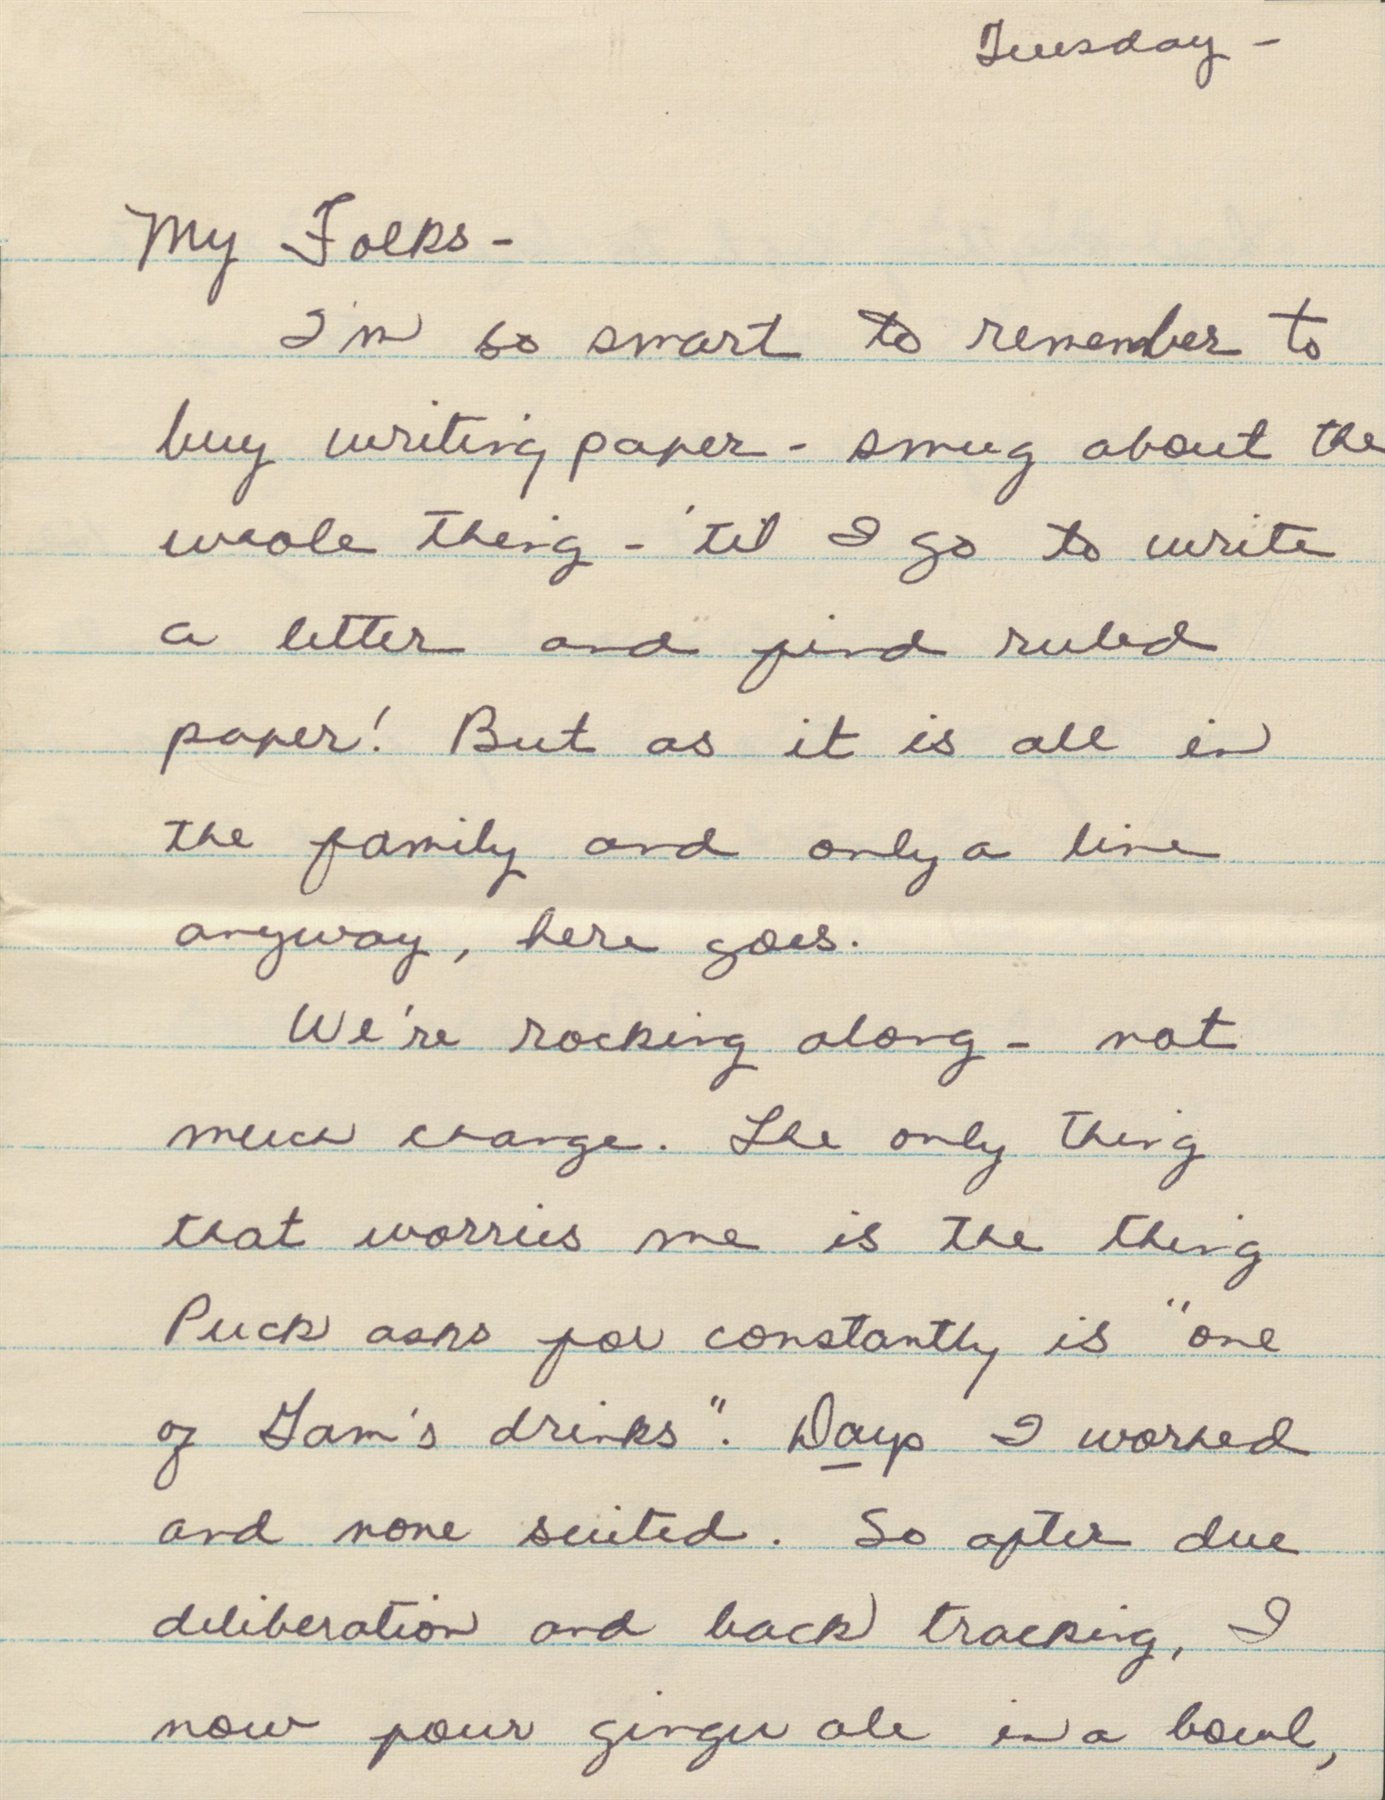 Tuesday -
My Folks -
I'm so smart to remember to
buy writing paper - smug about the
whole thing - 'til I go to write
a letter and find ruled
paper! But as it is all in
the family and only a line
anyway, here goes.
We're rocking along - not
much change. The only thing
that worries me is the thing
Puck asks for constantly is "one
of Gam's drinks". Days I worked
and none suited. So after due
deliberation and back tracking, I
now pour ginger ale in a bowl,